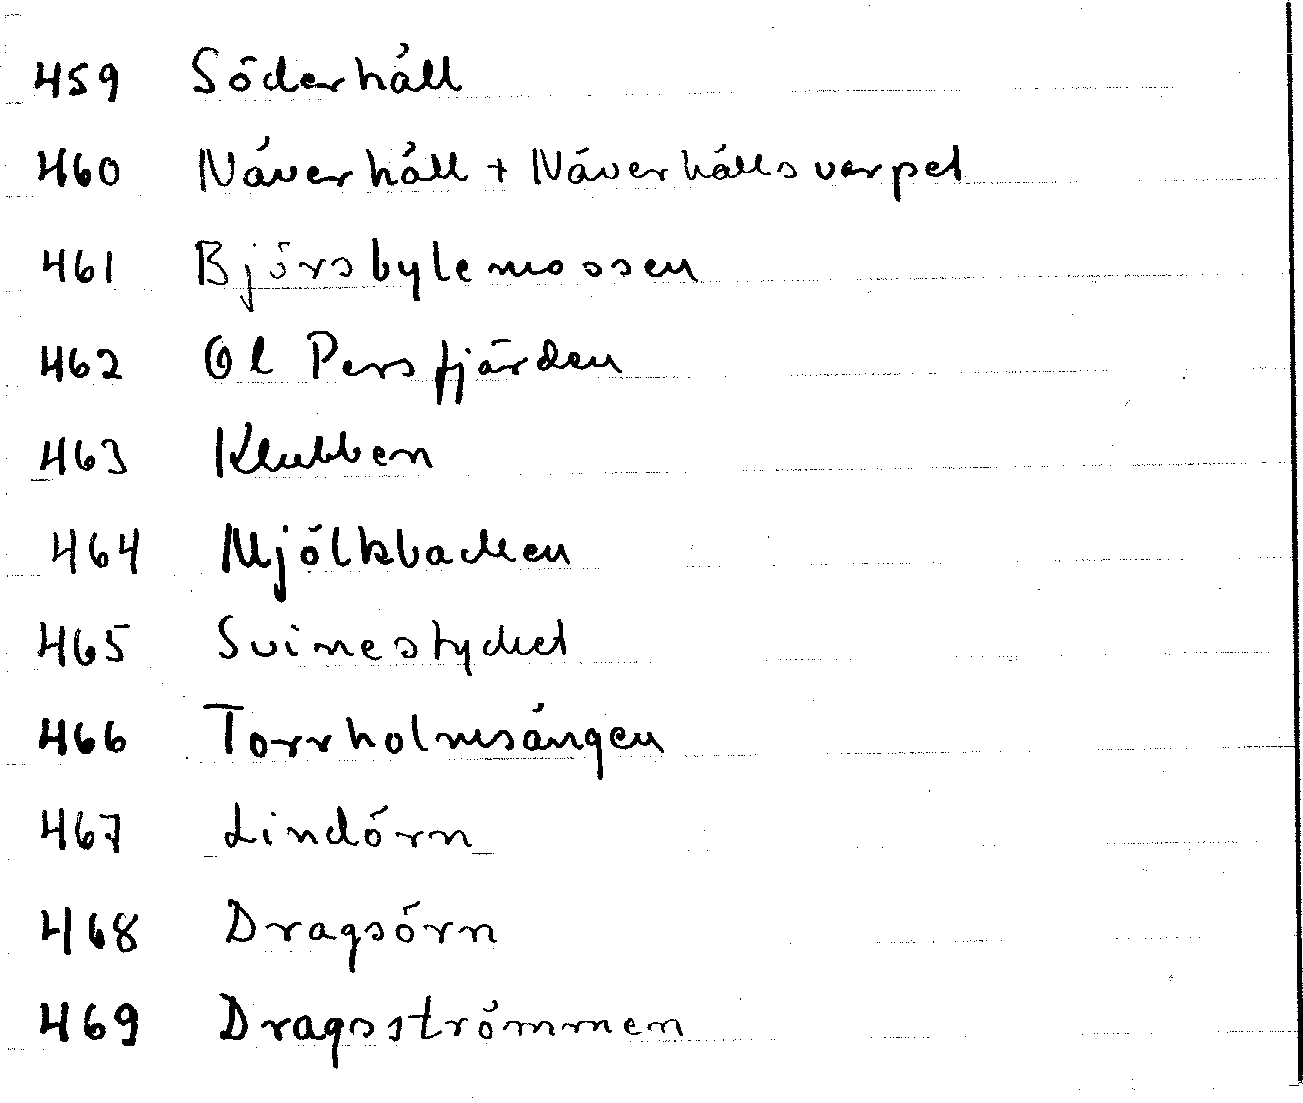 459 Söderhäll
460 Näverhäll + Näverhällsvarpet
461 Björsbylemossen
462 Ol Persfjärden
463 Klubben
464 Mjölkbacken
465 Svinestycket
466 Torrholmsängen
467 Lindörn
468 Dragsörn
469 Dragsströmmen